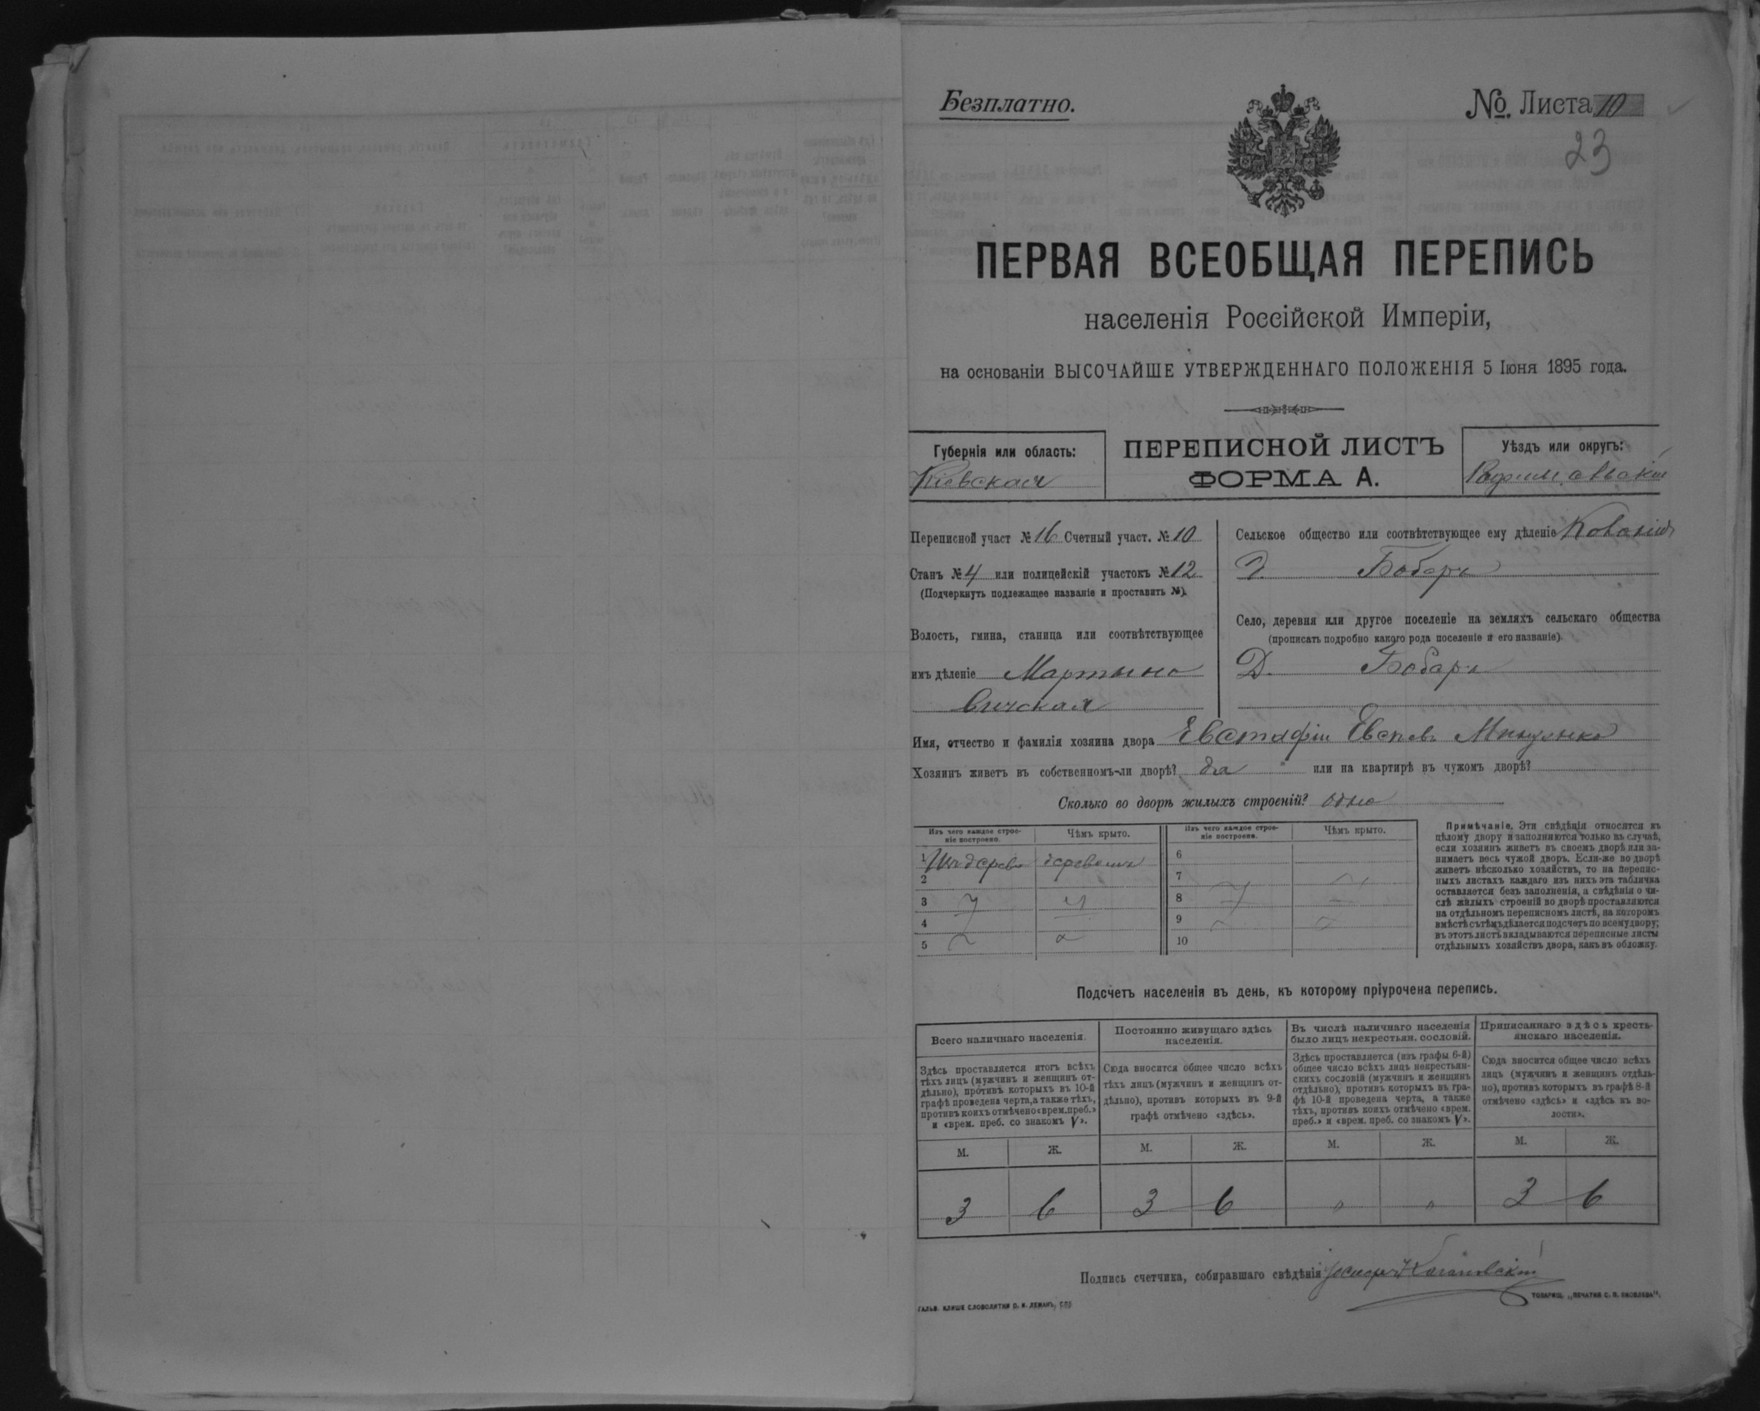 Безплатно.
№ Листа 10
23
ПЕРВАЯ ВСЕОБЩАЯ ПЕРЕПИСЬ
населенія Россійской Имперіи,
на основаніи ВЫСОЧАЙШЕ УТВЕРЖДЕННАГО ПОЛОЖЕНІЯ 5 Іюня 1895 года.
Губернія или область:
Кіевская
ПЕРЕПИСНОЙ ЛИСТЪ
ФОРМА А.
Уѣздъ или округъ:
Переписной участ № 16 Счетный участ. № 10
Станъ № 4 или полицейскій участокъ № 12
(Подчеркнуть подлежащее названіе и проставить №).
Волость, гмина, станица или соотвѣтствующее
имъ дѣленіе Мартыно
вичская
Сельское общество или соотвѣтствующее ему дѣленіе
Д. Бобаръ
Село, деревня или другое поселеніе на земляхъ сельскаго общества
(прописать подробно какого рода поселеніе и его названіе)
Д. Бобаръ
Имя, отчество и фамилія хозяина двора Евстафій
Хозяинъ живетъ въ собственномъ-ли дворѣ? да или на квартирѣ въ чужомъ дворѣ?
Сколько во дворѣ жилыхъ строеній? одно
Изъ чего каждое строе-
ніе построено.
Чѣмъ крыто.
Изъ чего каждое строе-
ніе построено.
Чѣмъ крыто.
1 6
2 7
3 8
4 9
5 10
Примѣчаніе. Эти свѣдѣнія относятся къ
цѣлому двору и заполняются только въ случаѣ,
если хозяинъ живетъ въ своемъ дворѣ или за-
нимаетъ весь чужой дворъ. Если-же во дворѣ
живетъ нѣсколько хозяйствъ, то на перепис-
ныхъ листахъ каждаго изъ нихъ эта табличка
оставляется безъ заполненія, а свѣдѣнія о чи-
слѣ жилыхъ строеній во дворѣ проставляются
на отдѣльномъ переписномъ листѣ, на которомъ
вмѣстѣ съ тѣмъ дѣлается подсчетъ по всему двору;
въ этотъ листъ вкладываются переписные листы
отдѣльныхъ хозяйствъ двора, какъ въ обложку.
Подсчетъ населенія въ день, къ которому пріурочена перепись.
Всего наличнаго населенія.
Здѣсь проставляется итогъ всѣхъ
тѣхъ лицъ (мужчинъ и женщинъ от-
дѣльно), противъ которыхъ въ 10-й
графѣ проведена черта, а также тѣхъ,
противъ коихъ отмѣчено «врем. преб.»
и «врем. преб. со знакомъ V».
Постоянно живущаго здѣсь
населенія.
Сюда вносится общее число всѣхъ
тѣхъ лицъ (мужчинъ и женщинъ от-
дѣльно), противъ которыхъ въ 9-й
графѣ отмѣчено «здѣсь».
Въ числѣ наличнаго населенія
было лицъ некрестьян. сословій.
Здѣсь проставляется (изъ графы 6-й)
общее число всѣхъ лицъ некрестьян-
скихъ сословій (мужчинъ и женщинъ
отдѣльно), противъ которыхъ въ гра-
фѣ 10-й проведена черта, а также
тѣхъ, противъ коихъ отмѣчено «врем.
преб.» и «врем. преб. со знакомъ V».
Приписаннаго здѣсь кресть-
янскаго населенія.
Сюда вносится общее число всѣхъ
лицъ (мужчинъ и женщинъ отдѣль-
но), противъ которыхъ въ графѣ 8-й
отмѣчено «здѣсь» и «здѣсь въ во-
лости».
М. Ж. М. Ж. М. Ж. М. Ж.
3 6 3 6 " " 3 6
Подпись счетчика, собиравшаго свѣдѣнія
ГАЛЬВ. КЛИШЕ СЛОВОЛИТНИ О. И. ЛЕМАНЪ, СПБ
ТОВАРИЩ. „ПЕЧАТНЯ С. П. ЯКОВЛЕВА".